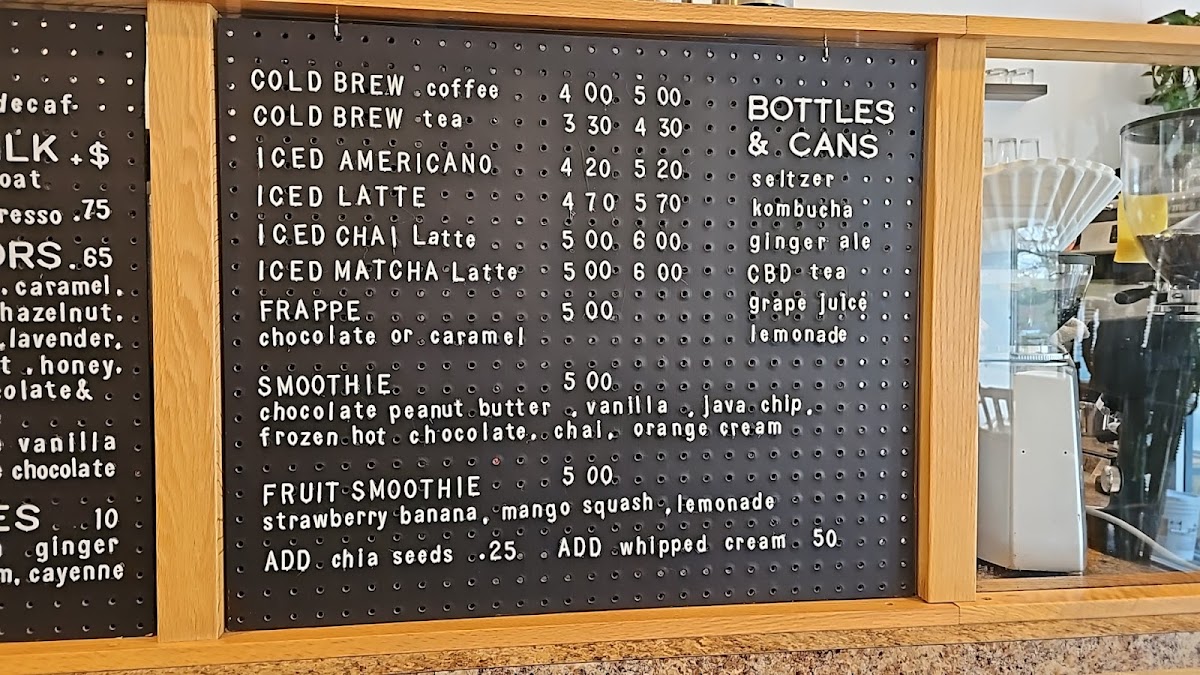 decaf
+$
oat
.75
.65
caramel,
hazelnut,
lavender,
honey,
&
vanilla
chocolate
10
ginger
cayenne
COLD BREW coffee 4 00 5 00
COLD BREW tea 3 30 4 30
ICED AMERICANO 4 20 5 20
ICED LATTE 4 70 5 70
ICED CHAI Latte 5 00 6 00
ICED MATCHA Latte 5 00 6 00
FRAPPE 5 00
chocolate or caramel
SMOOTHIE 5 00
chocolate peanut butter , vanilla , java chip,
frozen hot chocolate, chai, orange cream
FRUIT SMOOTHIE 5 00
strawberry banana, mango squash , lemonade
ADD chia seeds .25 ADD whipped cream 50
BOTTLES
& CANS
seltzer
kombucha
ginger ale
CBD tea
grape juice
lemonade